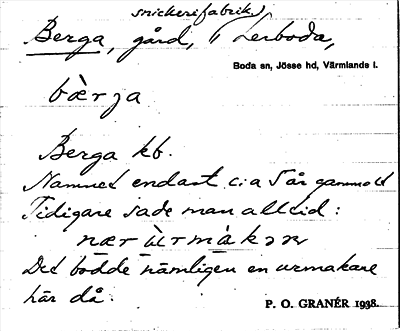 snickerifabrik)
Berga, gård, i Lerboda,
Boda sn, Jösse hd, Värmlands l.
bæ̀rja
Berga kb.
Namnet endast c:a 5 år gammalt
Tidigare sade man alltid:
nær ùrmàkar
Det bodde nämligen en urmakare
här då.
P. O. GRANÉR 1938.